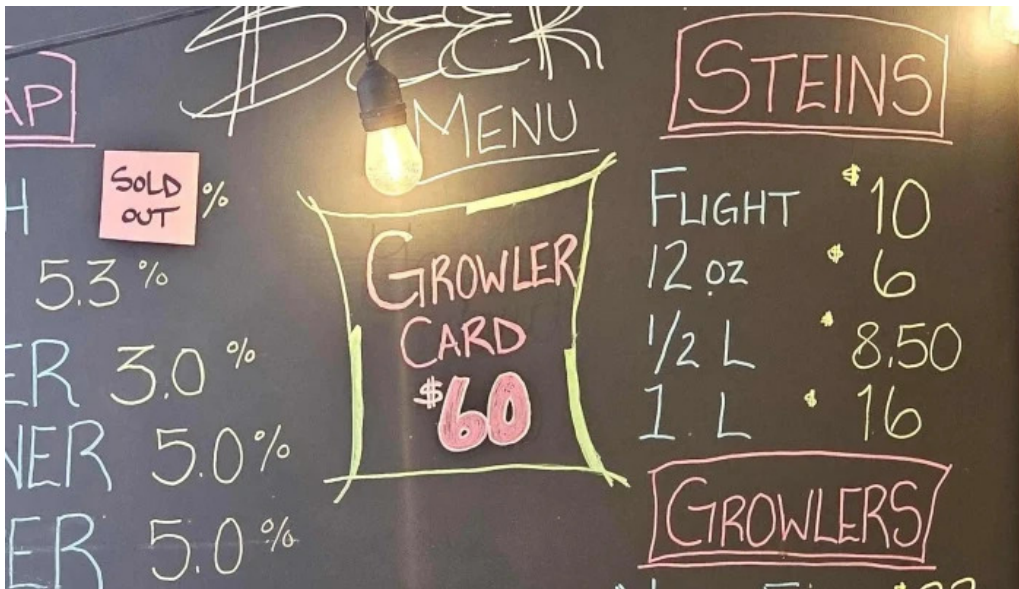 BEER
MENU
AP
H
SOLD
OUT
%
5.3%
ER 3.0%
NER 5.0%
ER 5.0%
GROWLER
CARD
$60
STEINS
FLIGHT $10
12 oz $6
1/2 L $8.50
1 L $16
GROWLERS